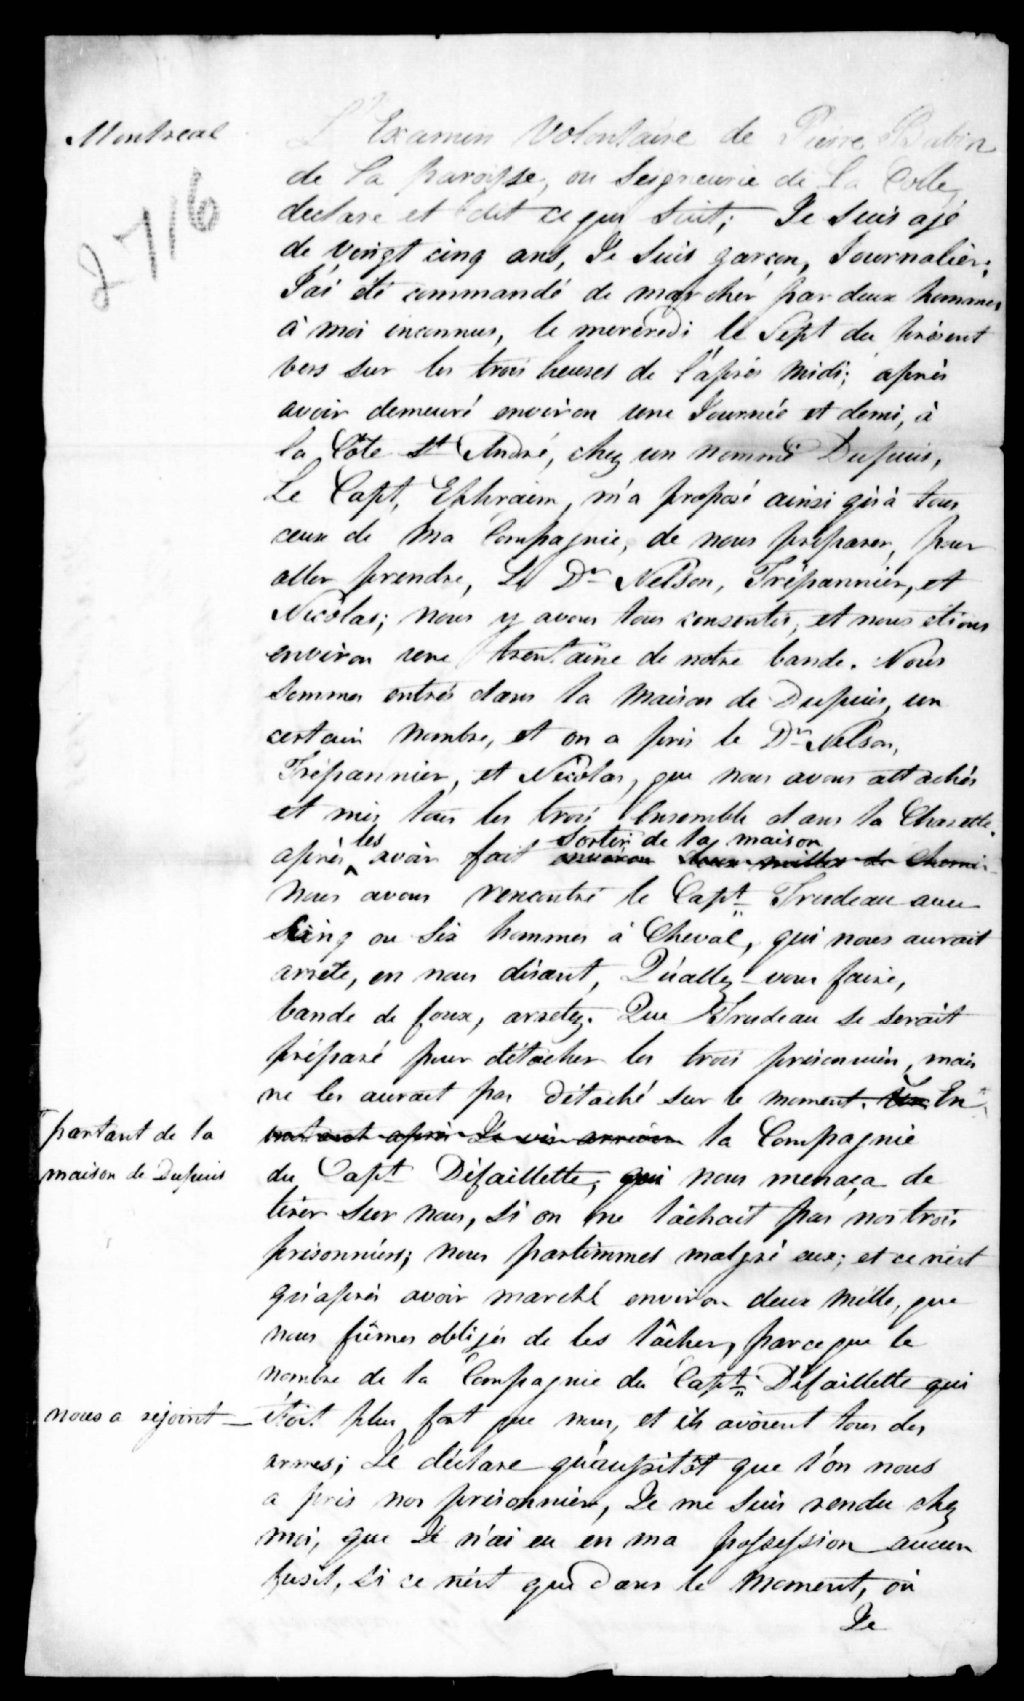 Montreal
2716
L'Examen Volontaire de Pierre Babin
de la paroisse, ou Seigneurie de La Colle,
declare et dit ce qui suit; Je suis agé
de vingt cinq ans, Je suis garçon, Journalier;
J'ai été commandé de marcher par deux hommes,
à moi inconnus, le mercredi le Sept du présent
vers sur les trois heures de l'après midi; après
avoir demeuré environ une Journée et demi, à
la Côte St André, chez un nommé Dupuis,
Le Capt, Ephraim, m'a proposé ainsi qu'à tous
ceux de Ma Compagnie, de nous préparer, pour
aller prendre, Le Dr Nelson, Trépannier, et
Nicolas; nous y avons tous consentis, et nous etions
environ une trentaine de notre bande. Nous
sommes entrés dans la Maison de Dupuis, un
certain nombre, et on a pris le Dr Nelson,
Trépannier, et Nicolas, que nous avons attachés
et mis tous les trois Ensemble dans la Charette.
après les avoir fait sortir de la maison
environ deux milles de chemin
nous avons rencontré le Capt Trudeau avec
cinq ou six hommes à Cheval, qui nous aurait
arrete, en nous disant, Qu'allez-vous faire,
bande de foux, arretez. Que Trudeau se serait
préparé pour détacher les trois prisonniers, mais
ne les aurait pas détaché sur le moment. En
partant de la
maison de Dupuis
instant après Je vis arriver la Compagnie
du Capt Défaillette, qui nous menaça de
tirer sur nous, si on ne lâchait pas nos trois
prisonniers; nous partimmes malgré eux; et ce n'est
qu'après avoir marché environ deux Mille, que
nous fûmes obligés de les lâcher, parceque le
nombre de la Compagnie du Capt Défaillette qui
nous a rejoint
étoit plus fort que nous, et ils avoient tous des
armes; Je déclare qu'aussitôt que l'on nous
a pris nos prisonniers, Je me suis rendu chez
moi, que Je n'ai eu en ma possession aucun
fusil, si ce n'est que dans le Moment, où
Je